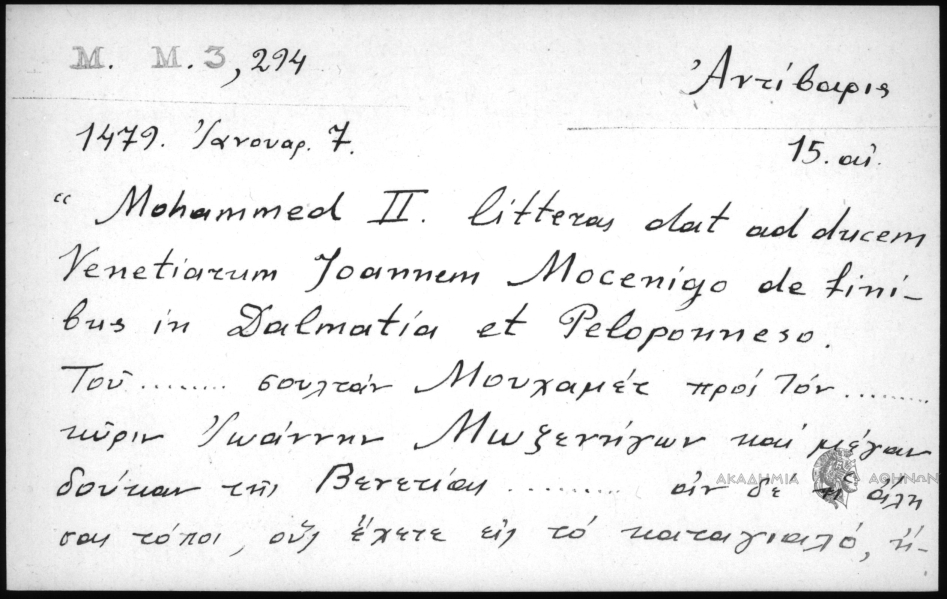 M. M. 3, 294
Ἀντίβαρις
1479. Ἰανουαρ. 7.
15. αἰ.
“ Mohammed II. litteras dat ad ducem
Venetiarum Joannem Mocenigo de fini-
bus in Dalmatia et Peloponneso.
Τοῦ ......... σουλτάν Μουχαμέτ πρός τόν .........
κῦριν Ἰωάννην Μωξενήγων καί μέγαν
δούκαν τῆς Βενετίας ......... ἀν δε
ΑΚΑΔΗΜΙΑ ΑΘΗΝΩΝ
σας τόποι, οὕς ἔχετε εἰς τό καταγιαλό, ἡ-